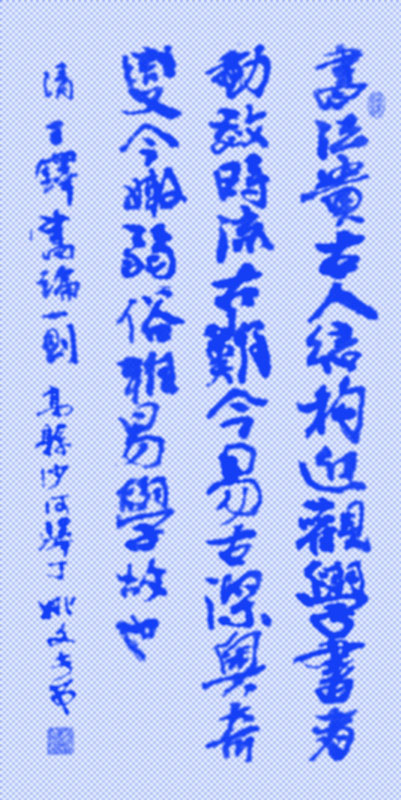 書法貴古人结构近觀學書者
動效時流古難今易古深奧奇
變今嫩弱俗雅易學故也
清王鐸書論一則高縣沙河驛丁姚文